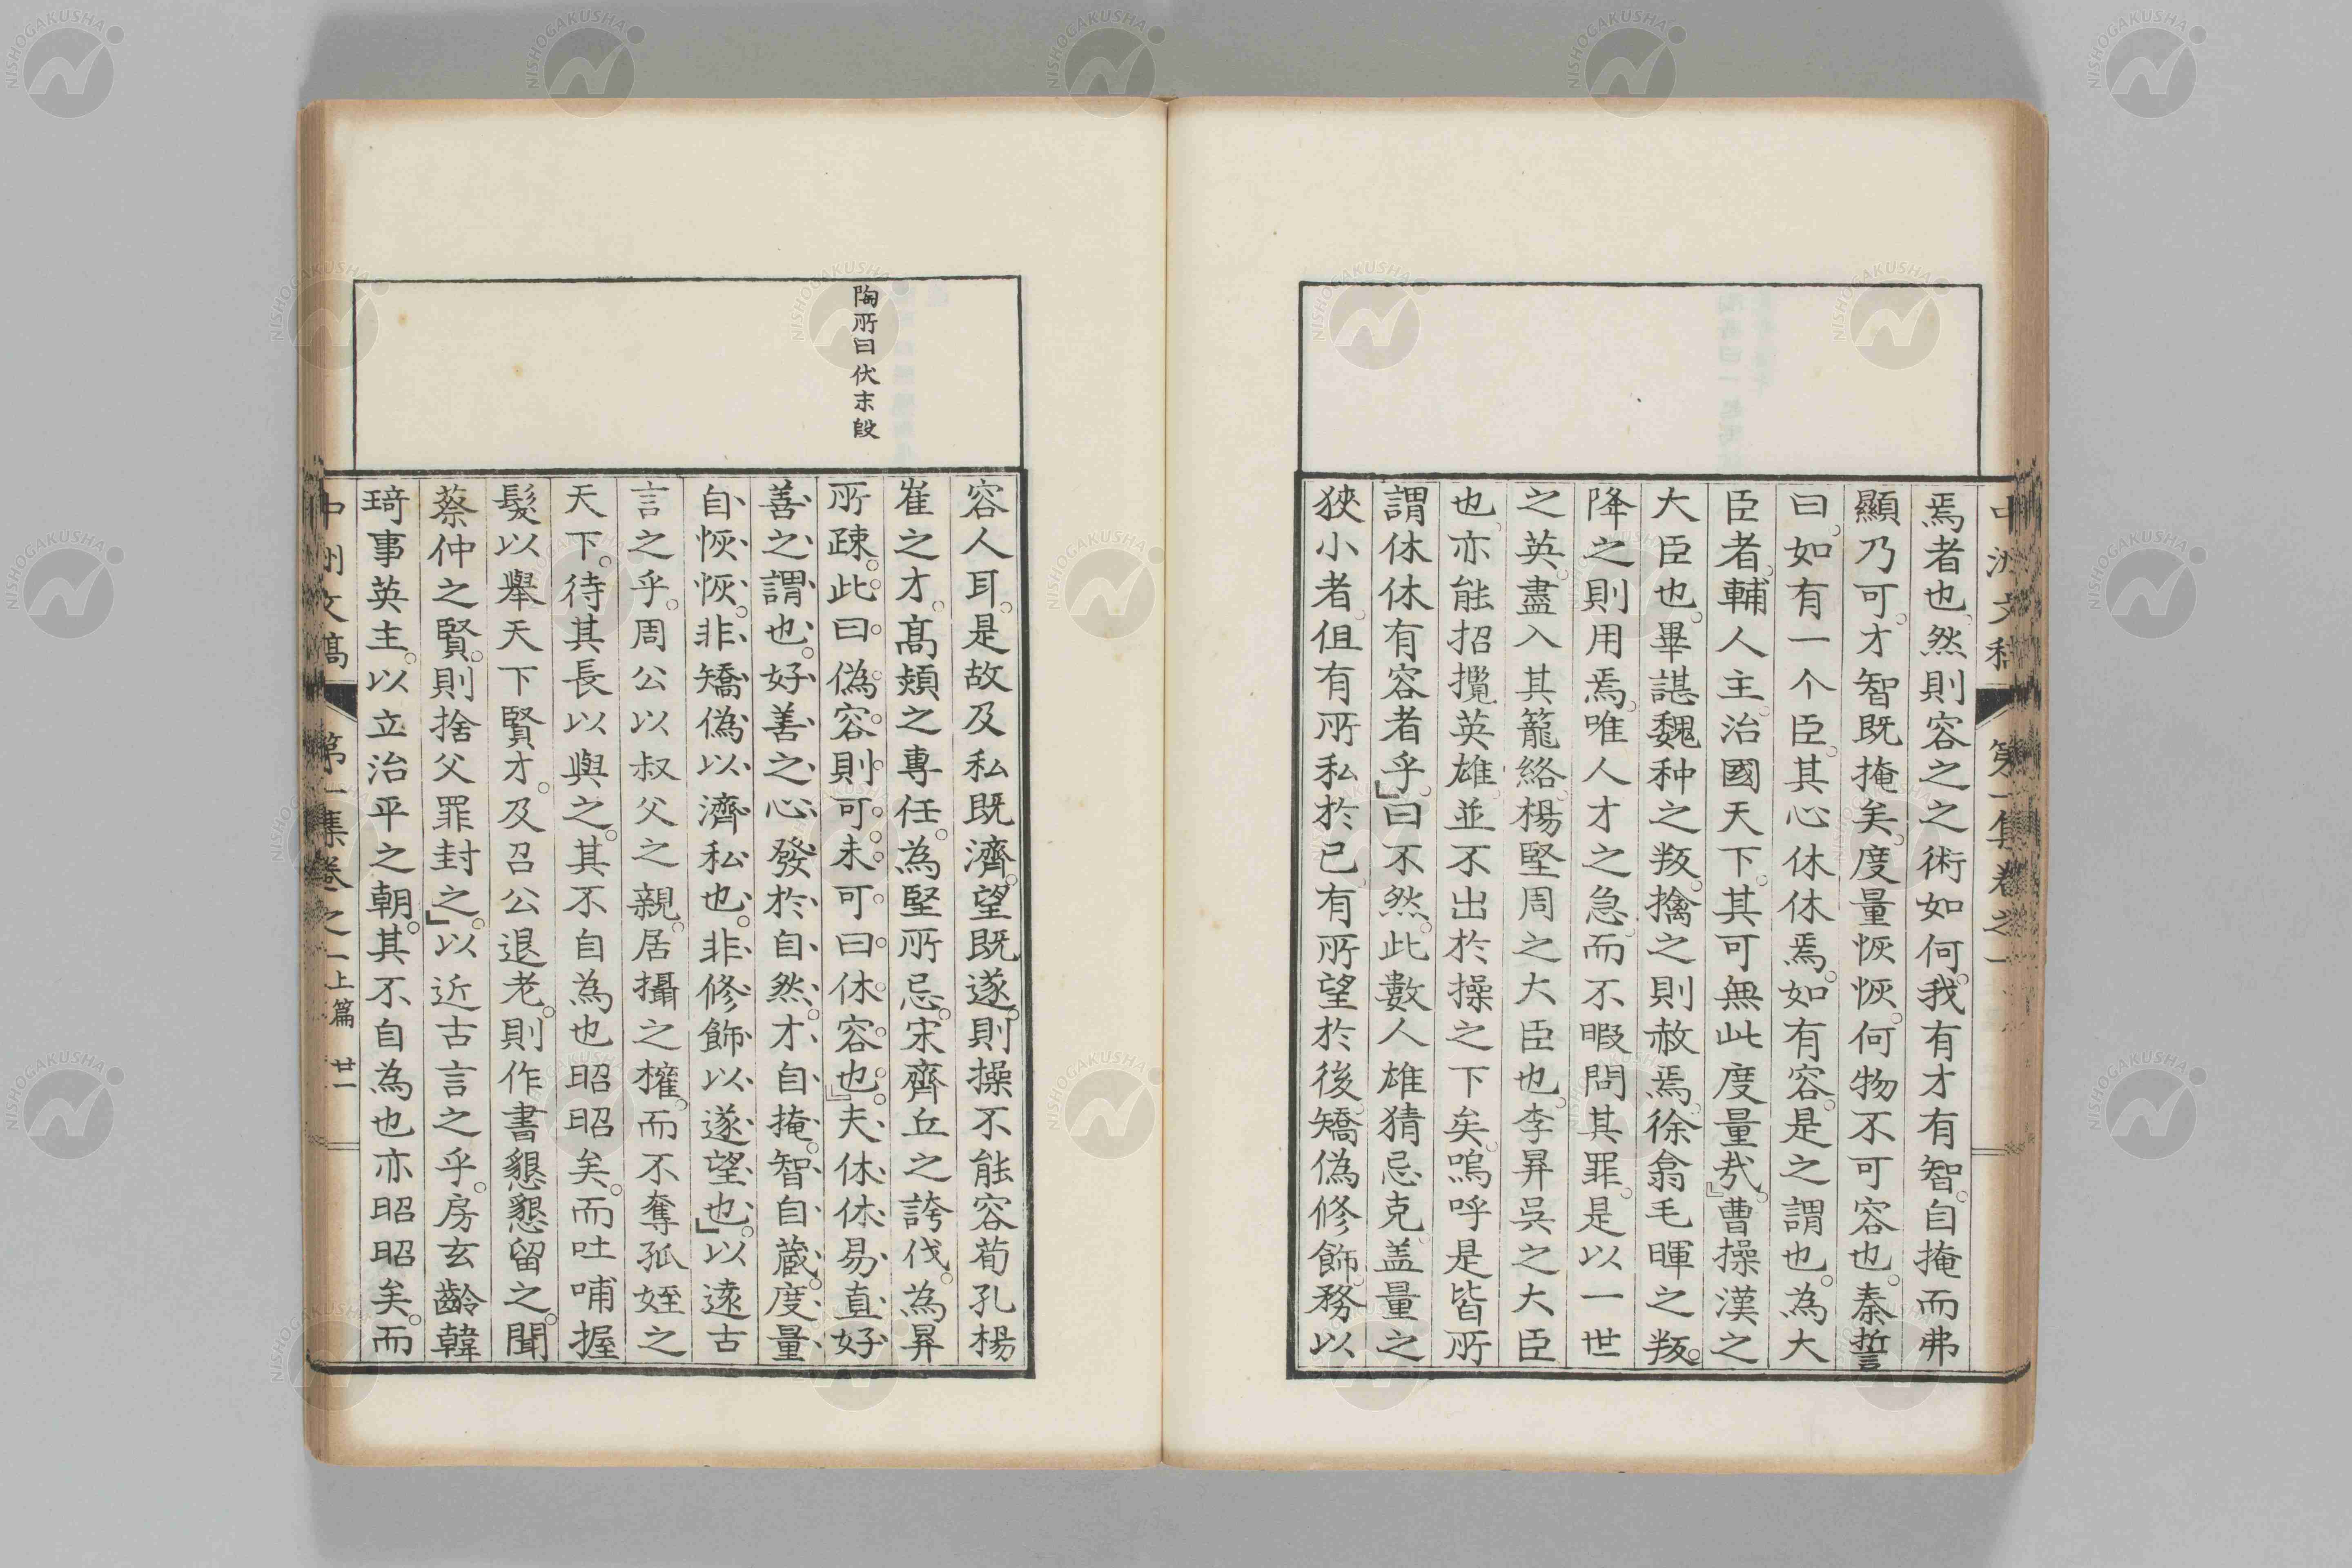 中洲文稿 第一集卷之一
焉者也然則容之之術如何我有才有智自掩而弗
顯乃可才智既掩矣度量恢恢何物不可容也秦誓
曰如有一个臣其心休休焉如有容是之謂也為大
臣者輔人主治國天下其可無此度量㢤曹操漢之
大臣也畢諶魏种之叛擒之則赦焉徐翕毛暉之叛
降之則用焉唯人才之急而不暇問其罪是以一世
之英盡入其籠絡楊堅周之大臣也李昇吳之大臣
也亦能招攬英雄並不出於操之下矣嗚呼是皆所
謂休休有容者乎」曰不然此數人雄猜忌克盖量之
狹小者但有所私於己有所望於後矯偽修飾務以
陶所曰伏末段
容人耳是故及私既濟望既遂則操不能容荀孔楊
崔之才高熲之專任為堅所忌宋齊丘之誇伐為昇
所疎此曰偽容則可未可曰休容也』夫休休易直好
善之謂也好善之心發於自然才自掩智自蔵度量
自恢恢非矯偽以濟私也非修飾以遂望也」以遠古
言之乎周公以叔父之親居攝之權而不奪孤姪之
天下待其長以與之其不自為也昭昭矣而吐哺握
髮以舉天下賢才及召公退老則作書懇懇留之聞
蔡仲之賢則捨父罪封之」以近古言之乎房玄齡韓
琦事英主以立治平之朝其不自為也亦昭昭矣而
中洲文稿 第一集卷之一上篇 廿一
NISHOGAKUSHA